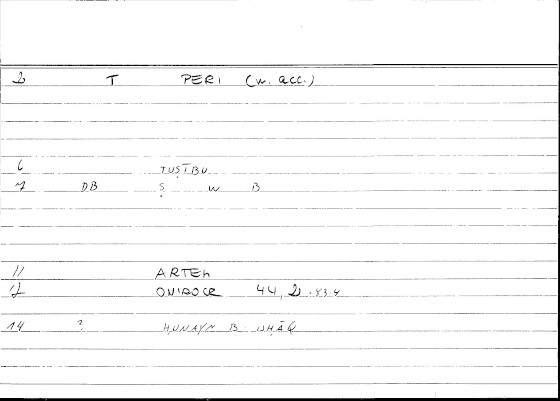 2 T PERI (w. acc.)
6 TUṢĪBU
7 DB Ṣ W B
11 ARTEM
12 ONIROCR 44, 2.434
14 ? ḤUNAYN B. ISḤĀQ